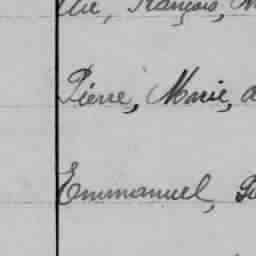 François,
Pierre, Marie,
Emmanuel,